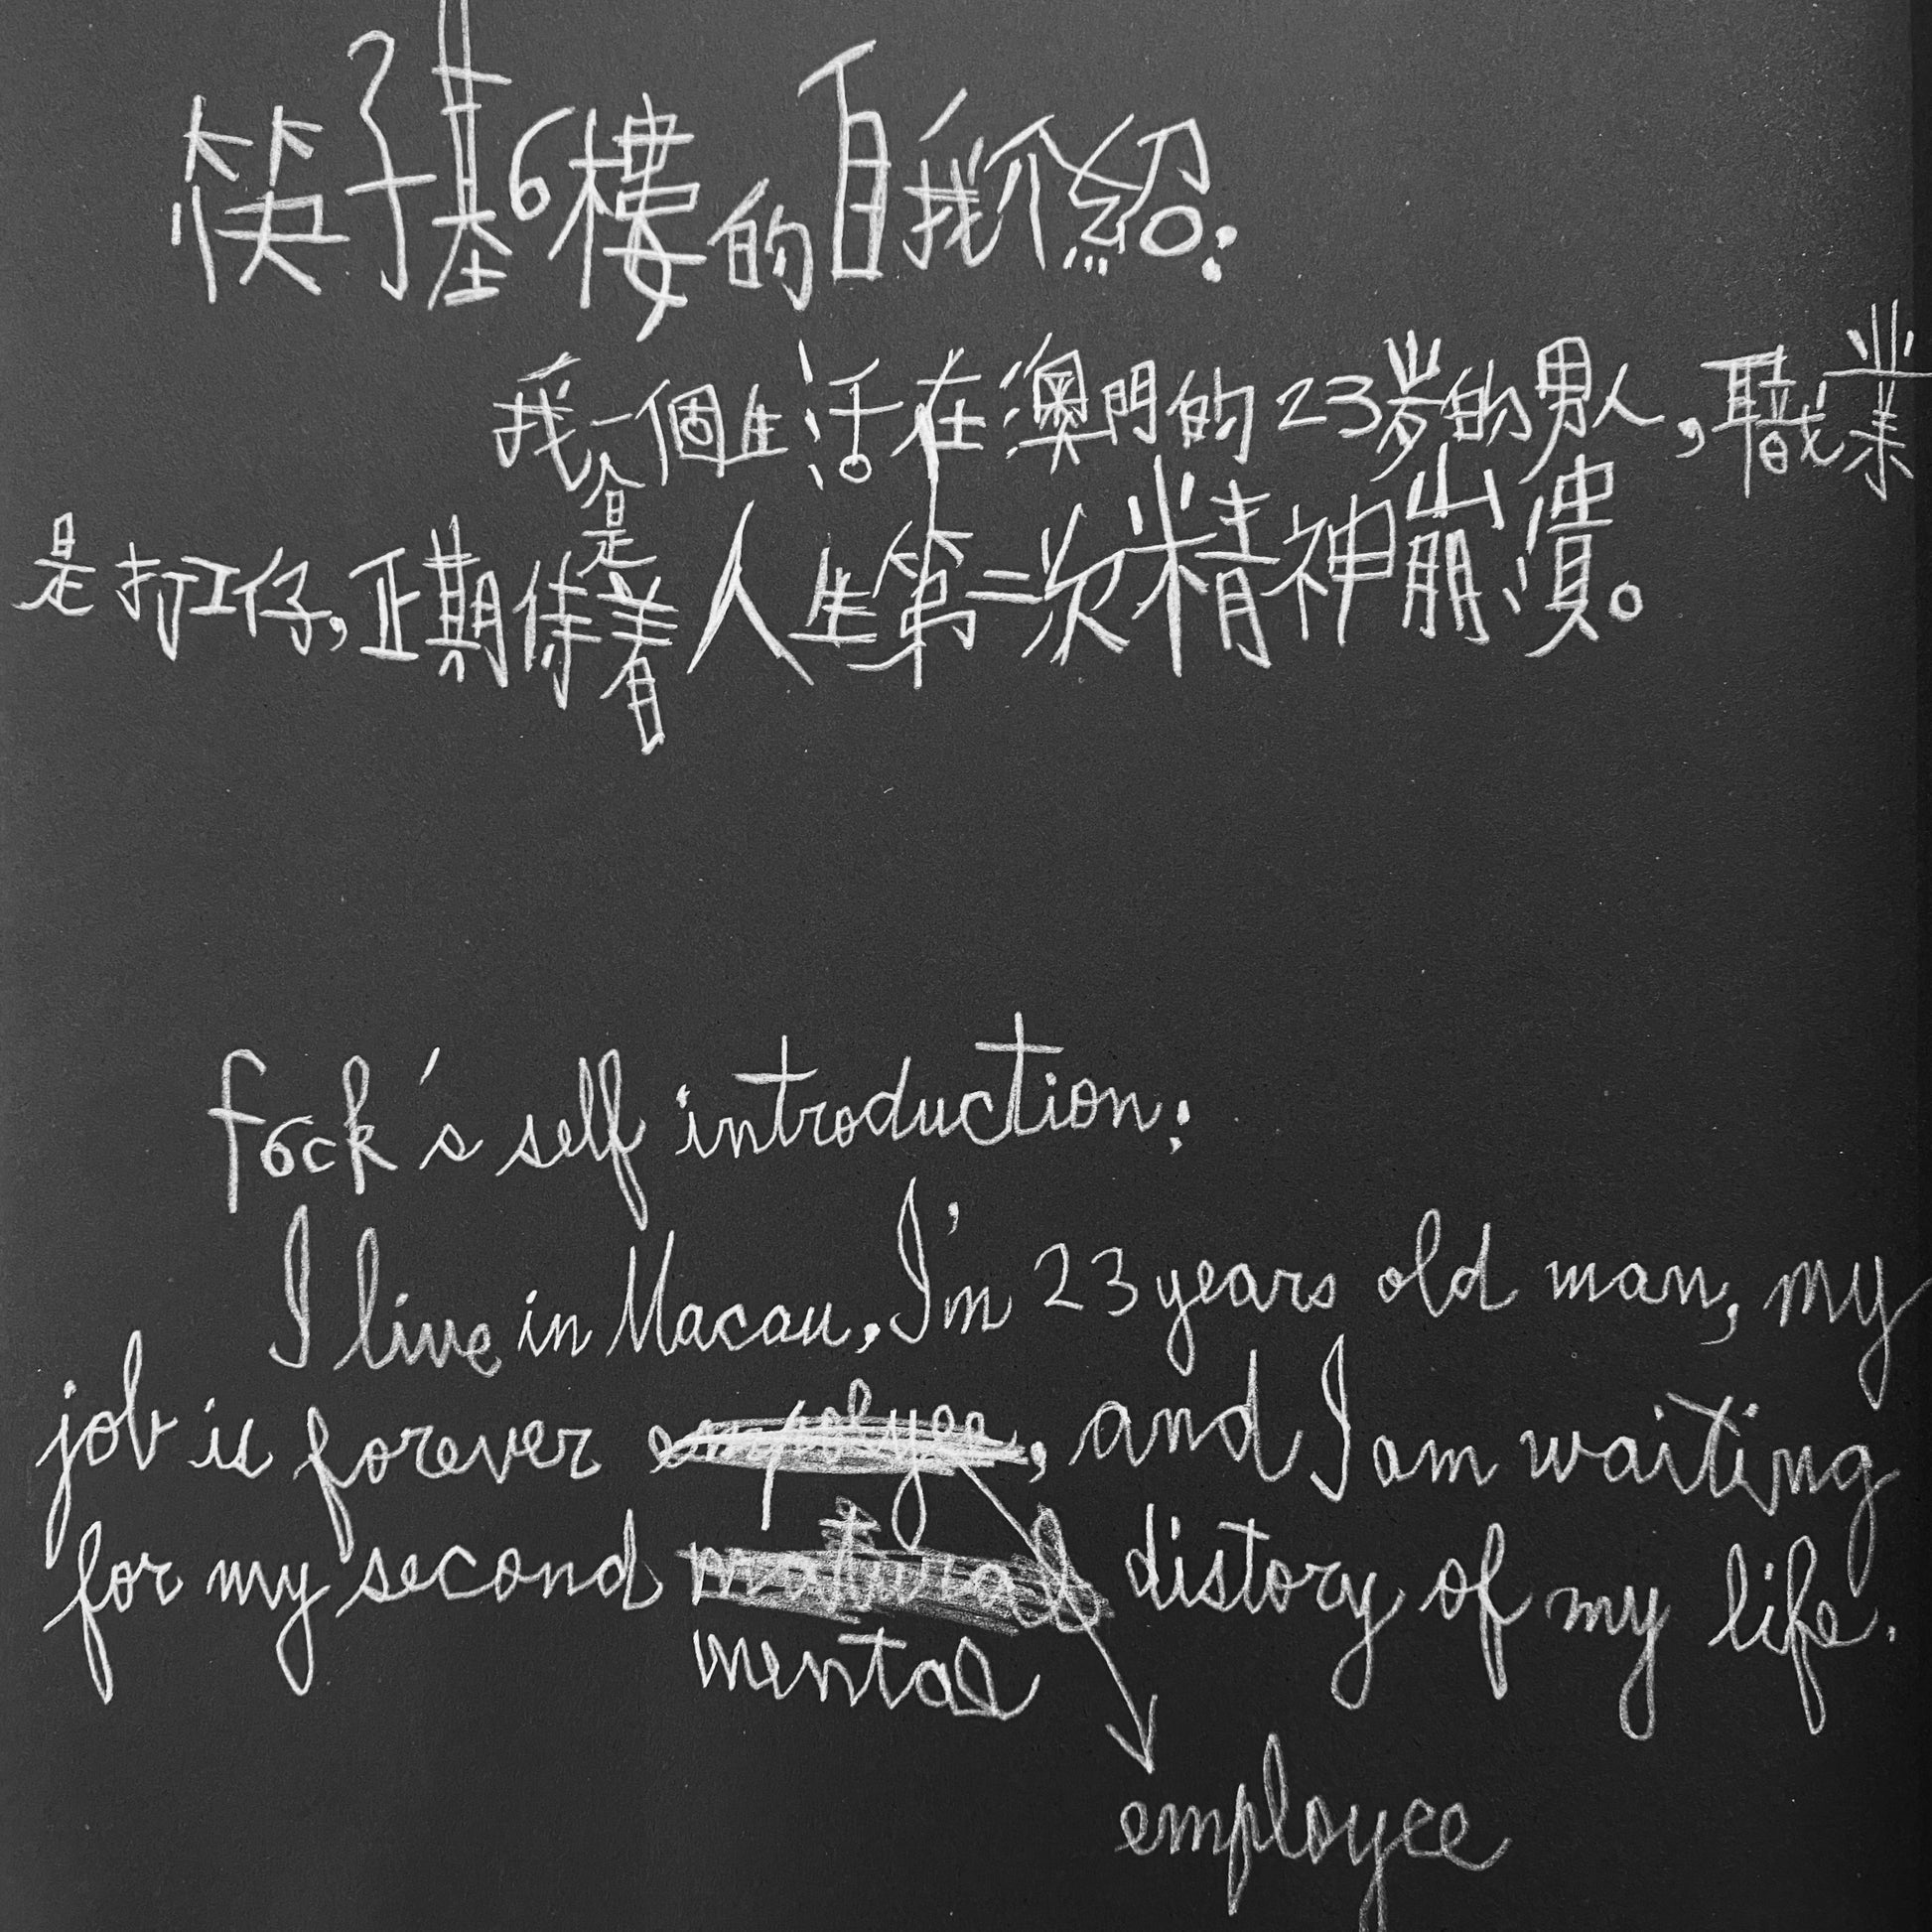 筷子基6樓的自我介紹:
我是一個生活在澳門的23岁的男人,職業
是打工仔,正期待着人生第二次精神崩潰。
fock's self introduction:
I live in Macau, I'm 23 years old man, my
job is forever , and I am waiting
for my second distory of my life.
mental
employee